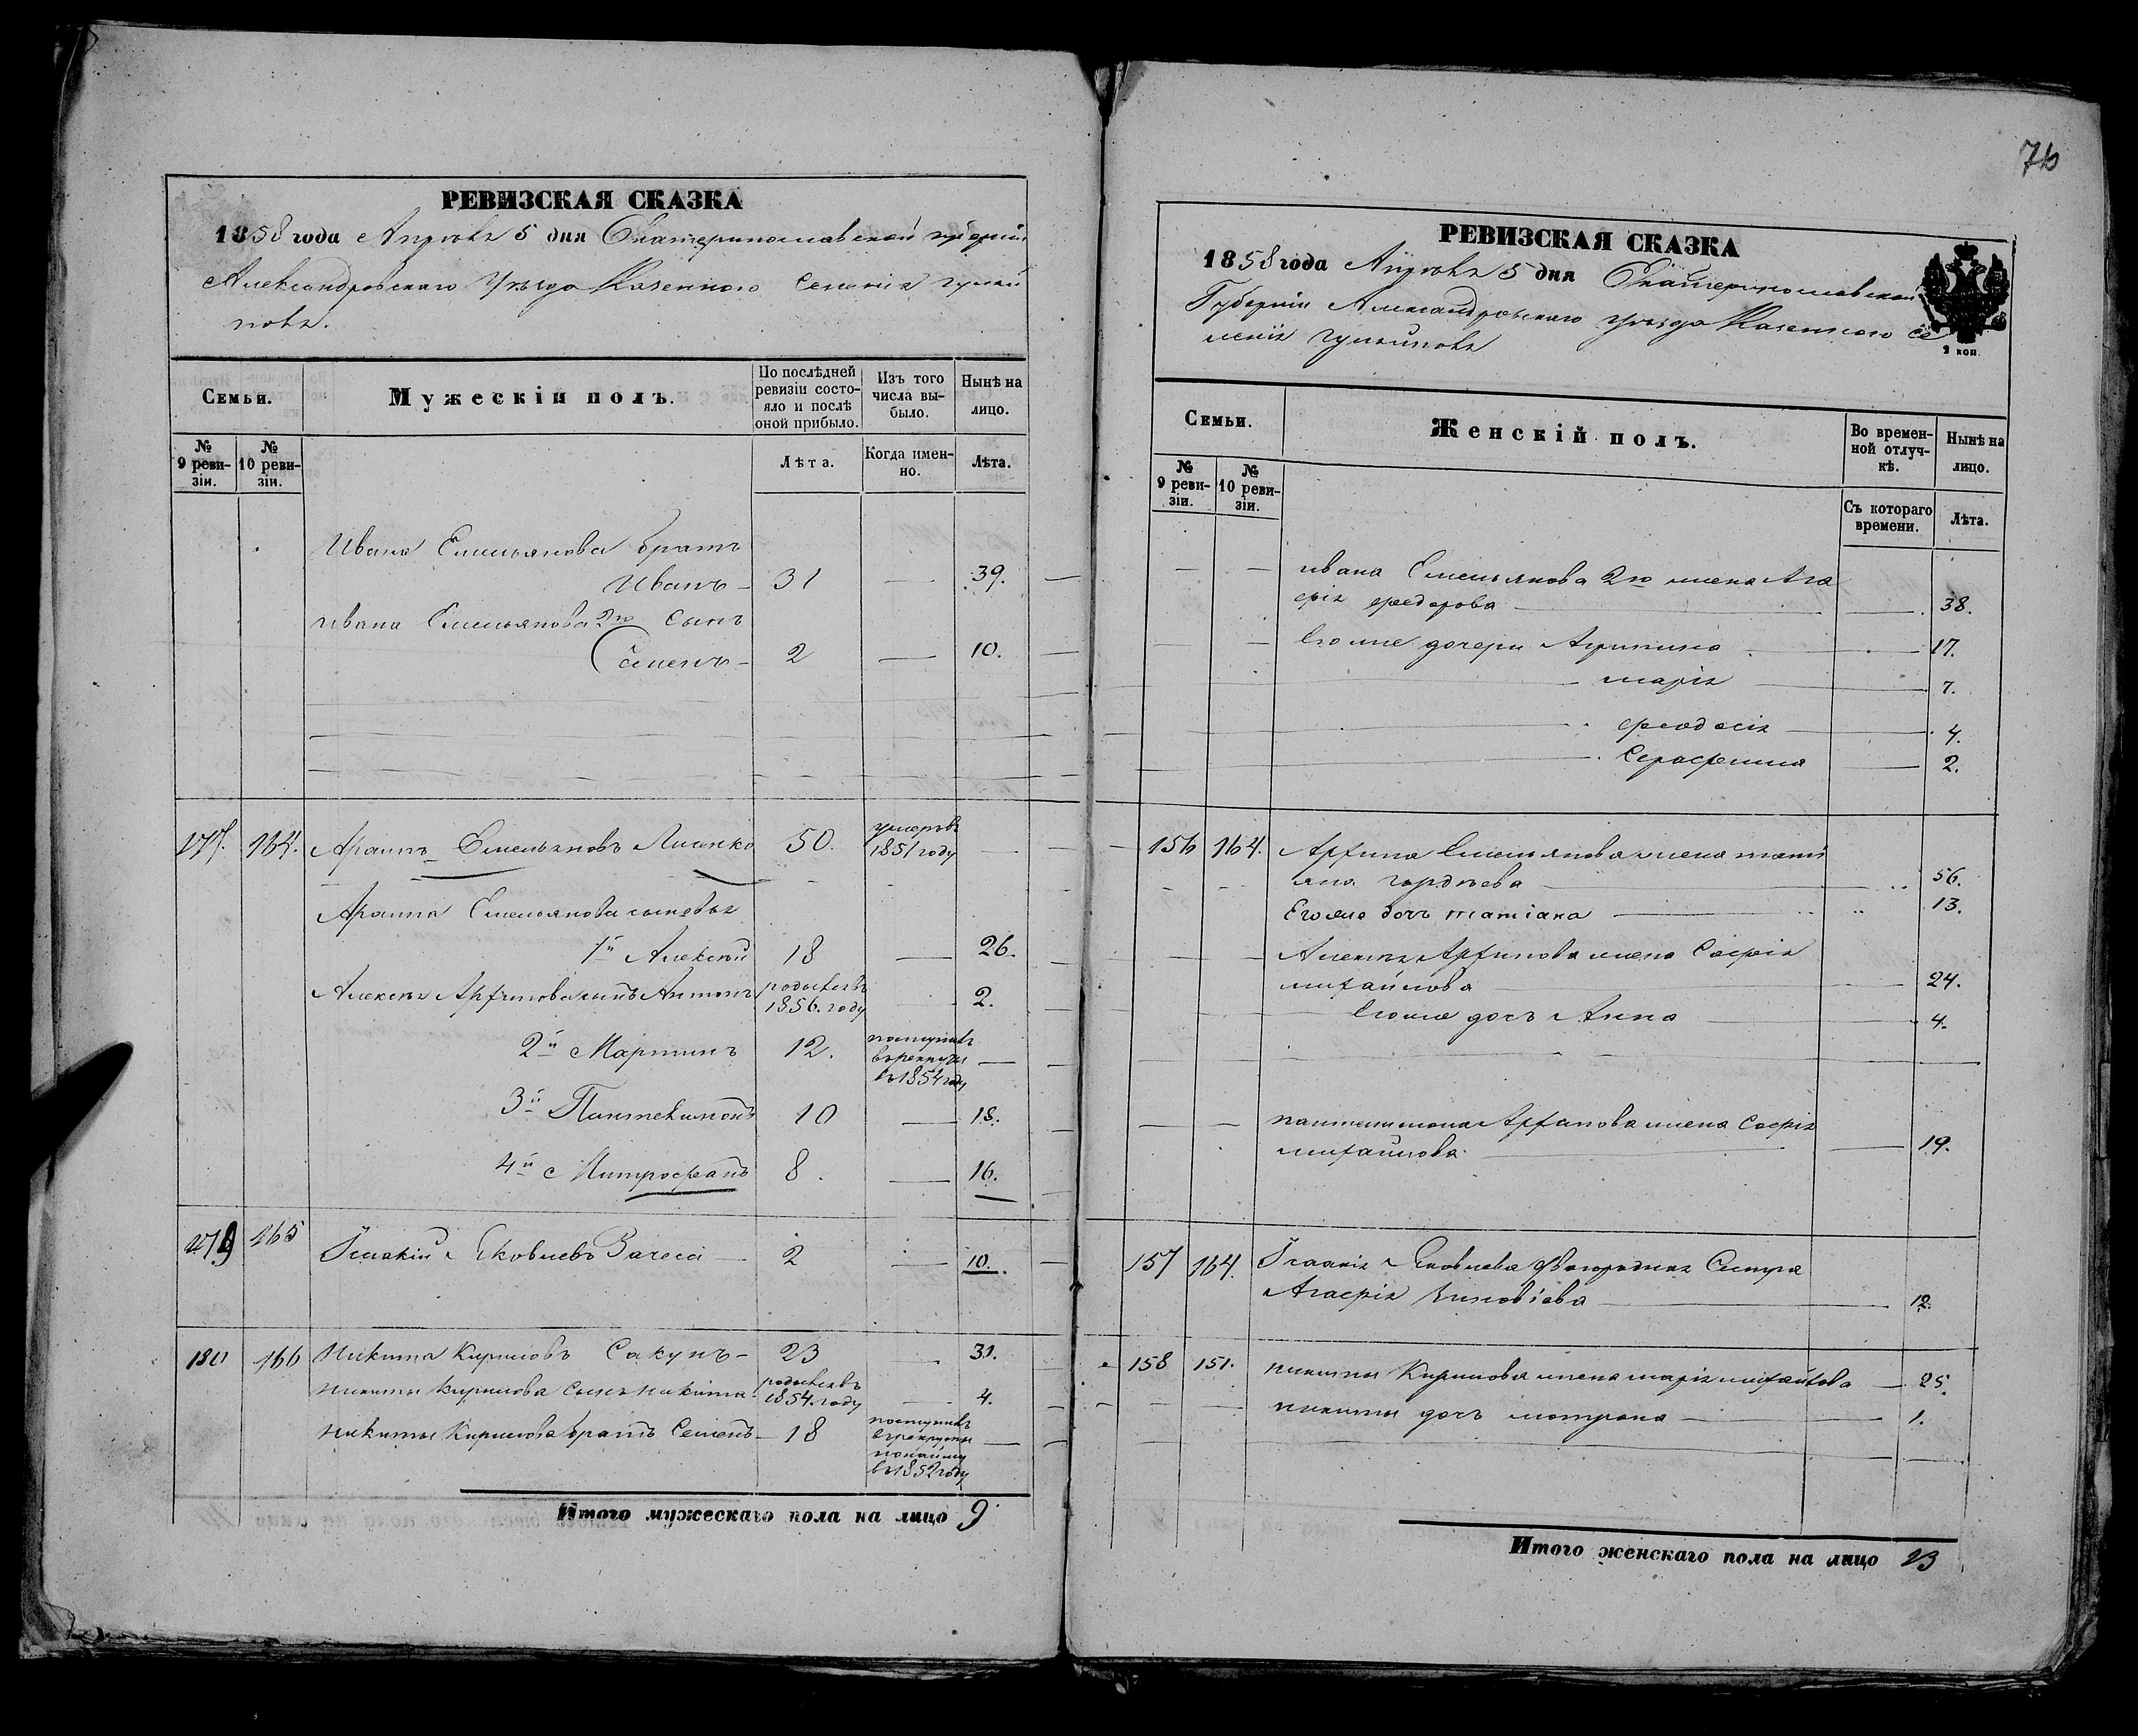 76
РЕВИЗСКАЯ СКАЗКА
1858 года Апреля 5 дня Екатеринославской губернии
Александровскаго Уезда Казеннаго Селения Гуляй
поля.
Семьи.
Мужескій полъ.
По послѣдней ревизіи состо-
яло и послѣ
оной прибыло.
Изъ того
числа вы-
было.
Нынѣ на
лицо.
№
9 реви-
зіи.
№
10 реви-
зіи.
Лѣта.
Когда имен-
но.
Лѣта.
Ивана Емельянова братъ
Иванъ 31 — 39.
Ивана Емельянова 2го сынъ
Семенъ 2 — 10.
164. Емельяновъ Лисенко 50. умеръ въ
1851 году
Емельянова сыновья
1й Алексѣй 18 — 26.
сынъ Антонъ родився въ
1856. году — 2.
2й Мартинъ 12. поступилъ
в рекруты
въ 1854 году
3й Пантелимонъ 10 — 18.
4й Митрофанъ 8. — 16.
179 165 Яковлевъ 2 — 10.
180 166 Никита Кириловъ Сакунъ 23 31.
Никиты Кирилова сынъ Никита родився въ
1854. году — 4.
Никиты Кирилова братъ Семенъ 18 поступилъ
в рекруты
по найму
въ 1852 году
Итого мужескаго пола на лицо 9
РЕВИЗСКАЯ СКАЗКА
1858 года Апреля 5 дня Екатеринославской
Губерніи Александровскаго уезда Казеннаго Се
ленія Гуляйполя
2 коп.
Семьи.
Женскій полъ.
Во времен-
ной отлуч-
кѣ.
Нынѣ на
лицо.
№
9 реви-
зіи.
№
10 реви-
зіи.
Съ котораго
времени.
Лѣта.
Ивана Емельянова 2го жена Ага
фія Федорова 38.
Его же дочери Акилина 17.
Марія 7.
Феодосія 4.
Серафима 2.
156 164. Емельянова жена Тати
яна Гордѣева 56.
Его же дочь Татіана 13.
жена Софія
Михайлова 24.
Его же дочь Анна 4.
Пантелимона жена Софія
Михайлова 19.
157 164. Яковлева двоюродная Сестра
Агафія Зиновіева 12.
158 151. Никиты Кирилова жена Марія Михайлова 25.
Никиты дочь Мотрона 1.
Итого женскаго пола на лицо 13